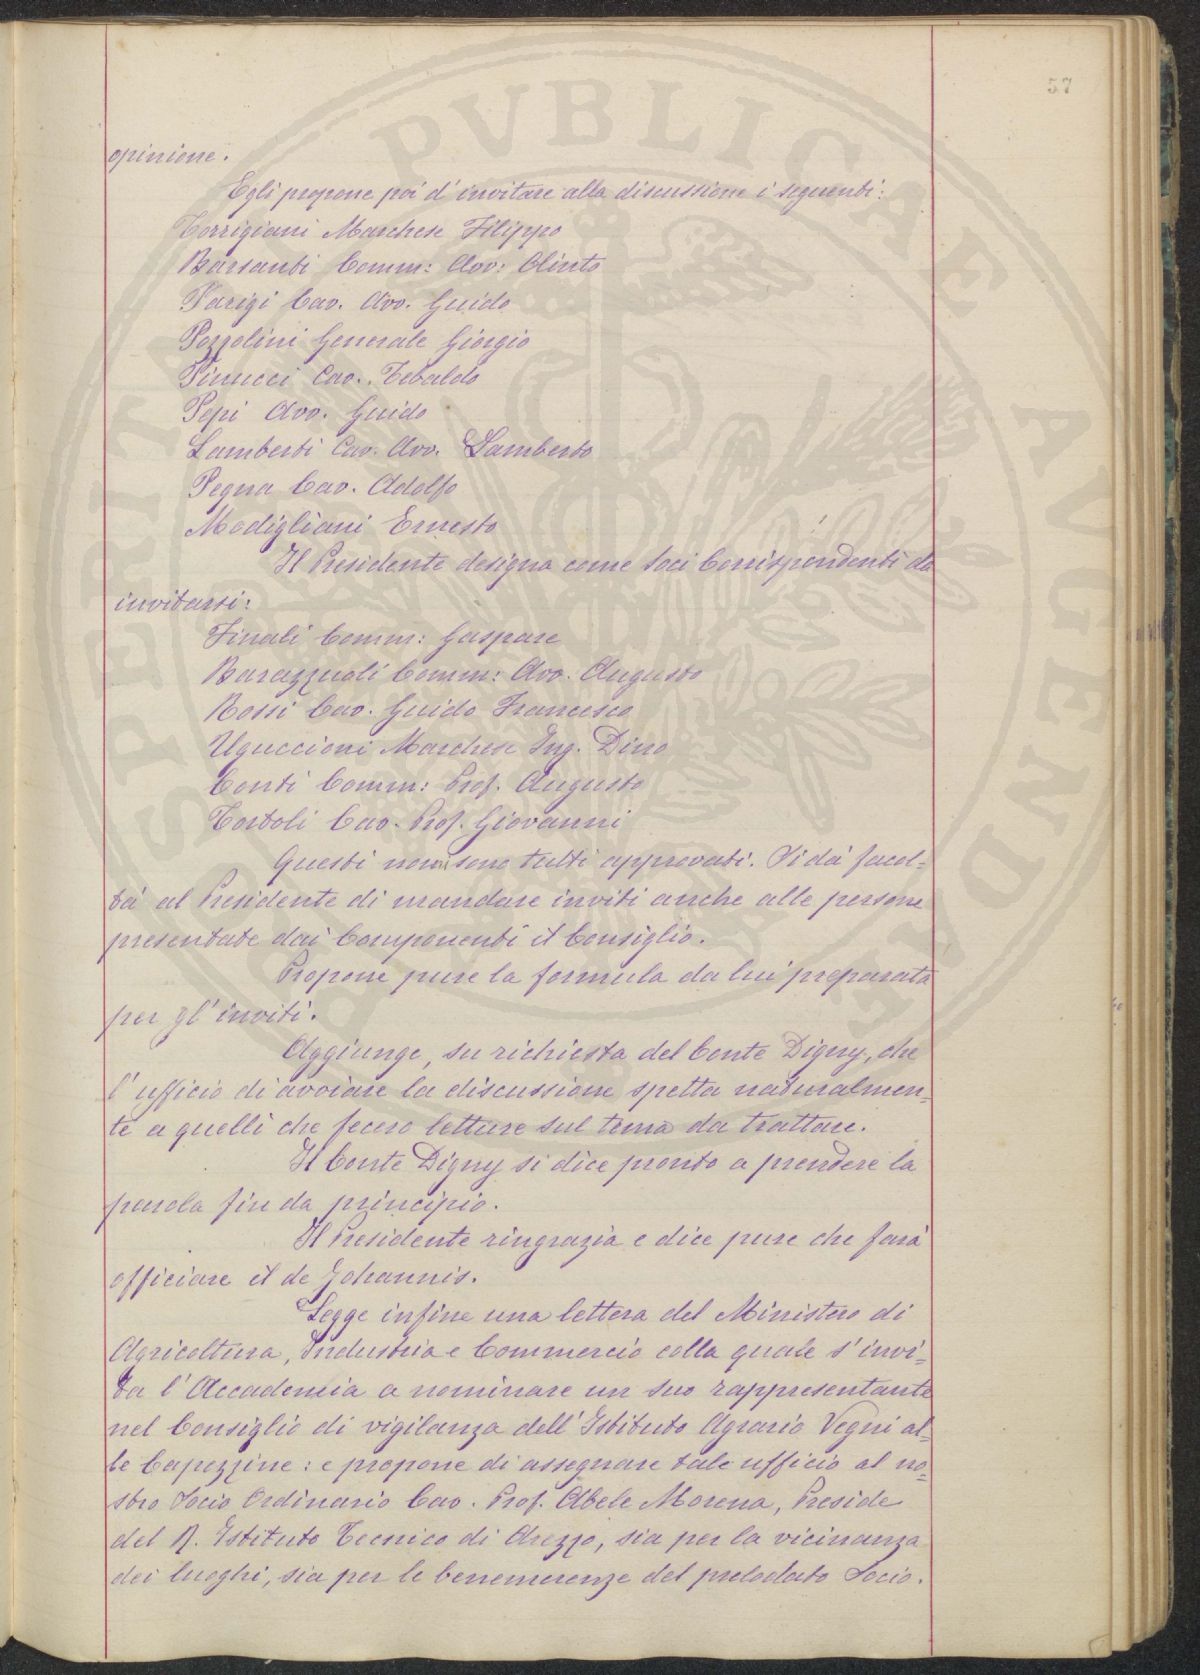 57
opinione.
Egli propone poi d'invitare alla discussione i seguenti:
Torrigiani Marchese Filippo
Barsanti Comm: Avv: Olinto
Parigi Cav. Avv. Guido
Pozzolini Generale Giorgio
Pinucci Cav. Tebaldo
Pepi Avv. Guido
Lamberti Cav. Avv. Lamberto
Pegna Cav. Adolfo
Modigliani Ernesto
Il Presidente designa come Soci Corrispondenti da
invitarsi:
Finali Comm: Gaspare
Barazzuoli Comm: Avv. Augusto
Rossi Cav. Guido Francesco
Uguccioni Marchese Ing. Dino
Conti Comm: Prof. Augusto
Tortoli Cav. Prof. Giovanni
Questi nomi sono tutti approvati. Si dà facol=
tà al Presidente di mandare inviti anche alle persone
presentate dai Componenti il Consiglio.
Propone pure la formula da lui preparata
per gl'inviti.
Aggiunge, su richiesta del Conte Digny, che
l'ufficio di avviare la discussione spetta naturalmen=
te a quelli che fecero letture sul tema da trattare.
Il Conte Digny si dice pronto a prendere la
parola fin da principio.
Il Presidente ringrazia e dice pure che farà
officiare il de Johannis.
Legge infine una lettera del Ministero di
Agricoltura, Industria e Commercio colla quale s'invi=
ta l'Accademia a nominare un suo rappresentante
nel Consiglio di vigilanza dell'Istituto Agrario Vegni al=
le Capezzine: e propone di assegnare tale ufficio al no=
stro Socio Ordinario Cav. Prof. Abele Morena, Preside
del R. Istituto Tecnico di Arezzo, sia per la vicinanza
dei luoghi, sia per le benemerenze del prelodato Socio.
PUBLICAE AUGENDAE
PROSPERITATI